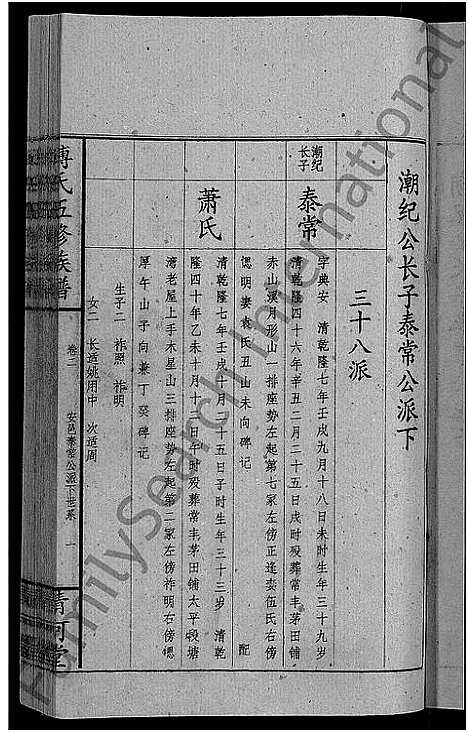 潮纪公长子泰常公派下
三十八派
潮纪长子
泰常
字典安 清乾隆七年壬戌九月十八日未时生年三十九岁
清乾隆四十六年辛丑二月二十五日戌时殁葬常丰茅田铺
赤山溪月形山一排座势左起第七冢左傍正逢娄伍氏右傍
偲明妻袁氏丑山未向碑记 配
萧氏
清乾隆七年壬戌十月二十五日子时生年三十三岁 清乾
隆四十年乙未十月十二日午时殁葬常丰茅田铺太平段塘
湾老屋上手木星山三排座势左起第二冢左傍祚明右傍偲
厚午山子向兼丁癸碑记
生子二 祚照 祚明
女二 长适姚用中 次适周
傅氏五修族谱
卷二
安邑泰常公派下世系 一
清河堂
FamilySearch International